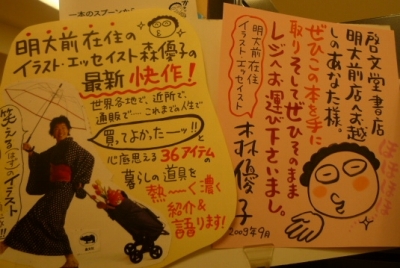 一本のスプーン
明大前在住の
イラスト・エッセイスト森優子の
最新快作！
世界各地で、近所で、
通販で……これまでの人生で
買ってよかたーーッ!!と
心底思える36アイテムの
暮らしの道具を
熱〜〜く濃く
紹介&
語ります！
笑える(はず)のイラスト
啓文堂書店
明大前店へお越
しのあなた様。
ぜひこの本を手に
取り、そしてぜひそのまま
レジへお運び下さいまし。
明大前在住
イラスト・エッセイスト
森優子
2009年9月